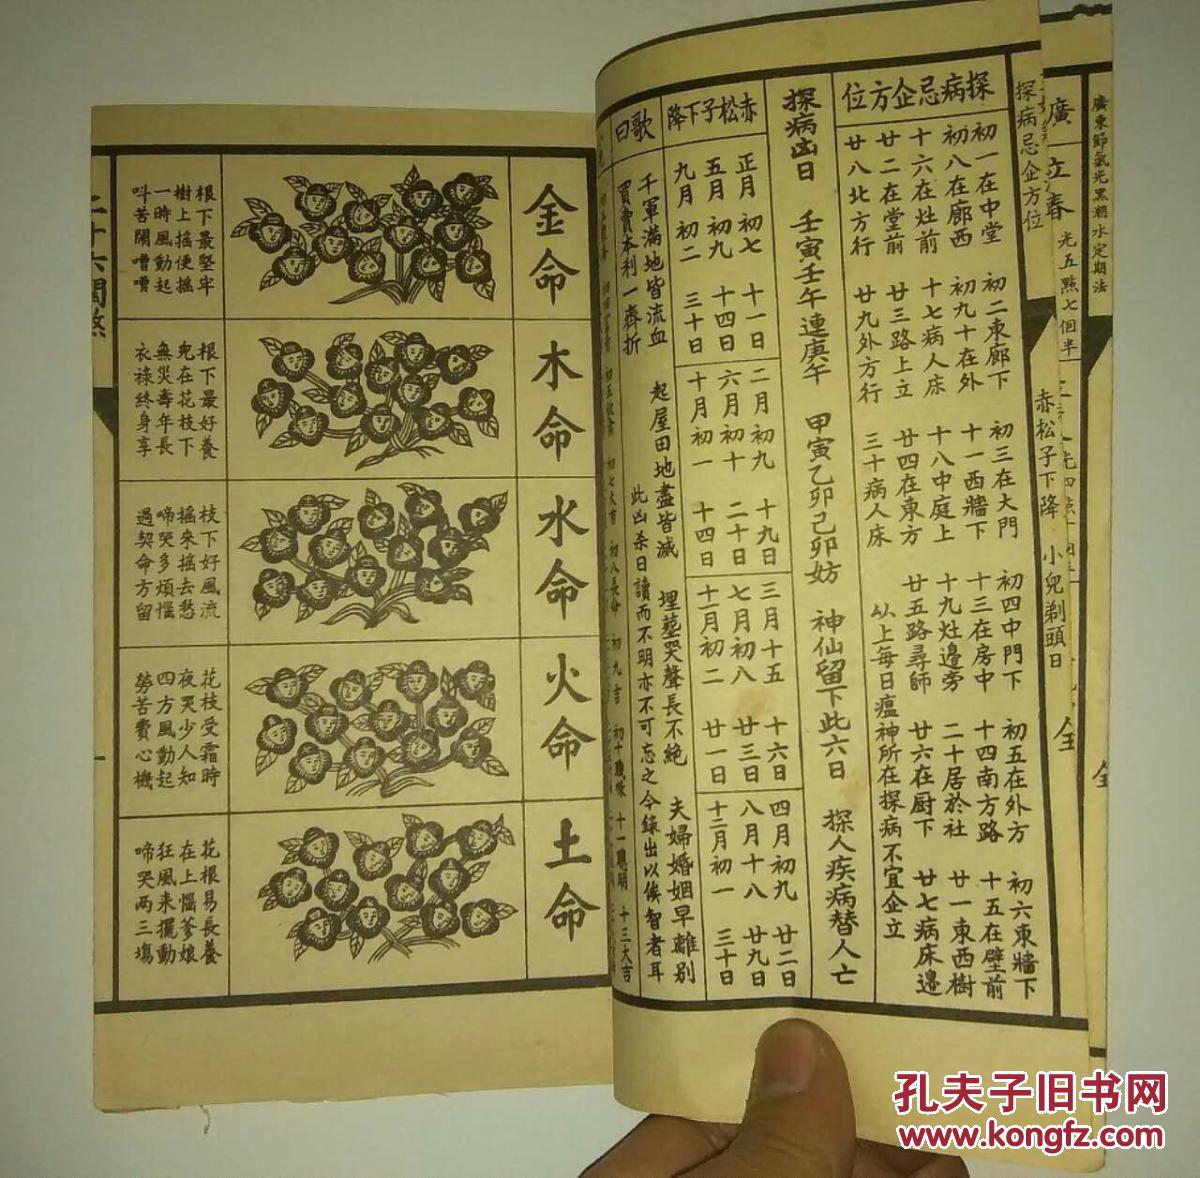 廣東節氣光黑潮水定期法
廣
立春 光五點七個半
全
探病忌企方位 赤松子下降 小兒剃頭日 全
探病忌企方位
初一在中堂 初二東廊下 初三在大門 初四中門下 初五在外方 初六東牆下
初八在廊西 初九十在外 十一西牆下 十三在房中 十四南方路 十五在壁前
十六在灶前 十七病人床 十八中庭上 十九灶邊旁 二十居於社 廿一東西樹
廿二在堂前 廿三路上立 廿四在東方 廿五路尋師 廿六在厨下 廿七病床邊
廿八北方行 廿九外方行 三十病人床 以上每日瘟神所在探病不宜企立
探病凶日 壬寅壬午連庚午 甲寅乙卯己卯妨 神仙留下此六日 探人疾病替人亡
赤松子下降
正月初七 十一日 二月初九 十九日 三月十五 十六日 四月初九 廿二日
五月初九 十四日 六月初十 二十日 七月初八 廿三日 八月十八 廿九日
九月初二 三十日 十月初一 十四日 十一月初二 廿一日 十二月初一 三十日
歌曰
千軍滿地皆流血 起屋田地盡皆滅 埋墓哭聲長不絕 夫婦婚姻早離別
買賣本利一齊折 此凶杀日讀而不明亦不可忘之今錄出以俟智者耳
初七大吉 初八長命 初九吉 初十 十一聰明 十三大吉
金命
根下最堅牢
樹上搖便搖
一時風動起
呌苦鬧嘈嘈
木命
根下最好養
兜在花枝下
無災壽年長
衣祿終身享
水命
枝下好風流
搖來搖去愁
啼哭多煩惱
過契命方留
火命
花枝受霜時
夜哭少人知
四方風動起
勞苦費心機
土命
花根易長養
在上惱爹娘
狂風來擺動
啼哭兩三塲
二十六關煞
一
孔夫子旧书网
www.kongfz.com